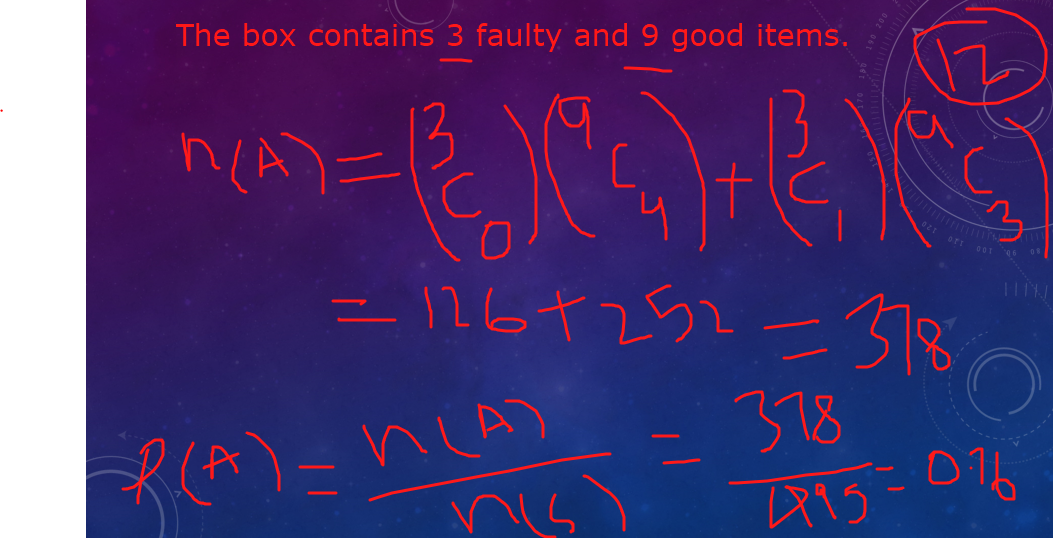 The box contains 3 faulty and 9 good items.
12
n(A) = (3C0)(9C4) + (3C1)(9C3)
= 126 + 252 = 378
P(A) = n(A)/n(S) = 378/495 = 0.76